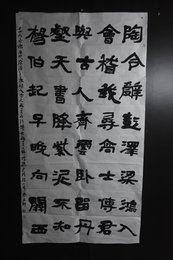 陶令辭彭澤梁鴻入
會稽我尋高士傳君
與古人齊雲卧留丹
壑天書降紫泥不知
楊伯起早晚向關西